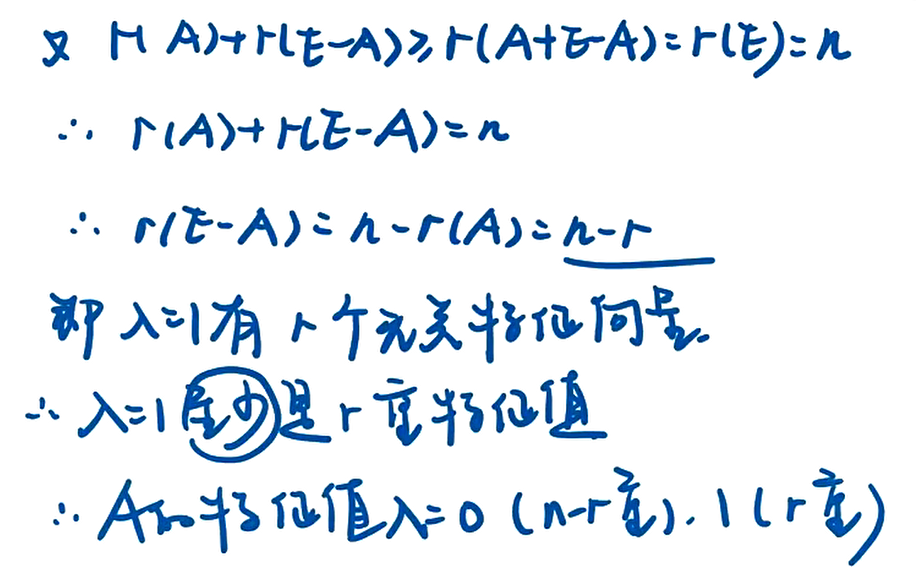 又 r(A)+r(E-A)≥r(A+E-A)=r(E)=n
∴ r(A)+r(E-A)=n
∴ r(E-A)=n-r(A)=n-r
即 λ=1有 r个无关特征向量.
∴ λ=1至少是r重特征值
∴ A的特征值λ=0 (n-r重). 1 (r重)